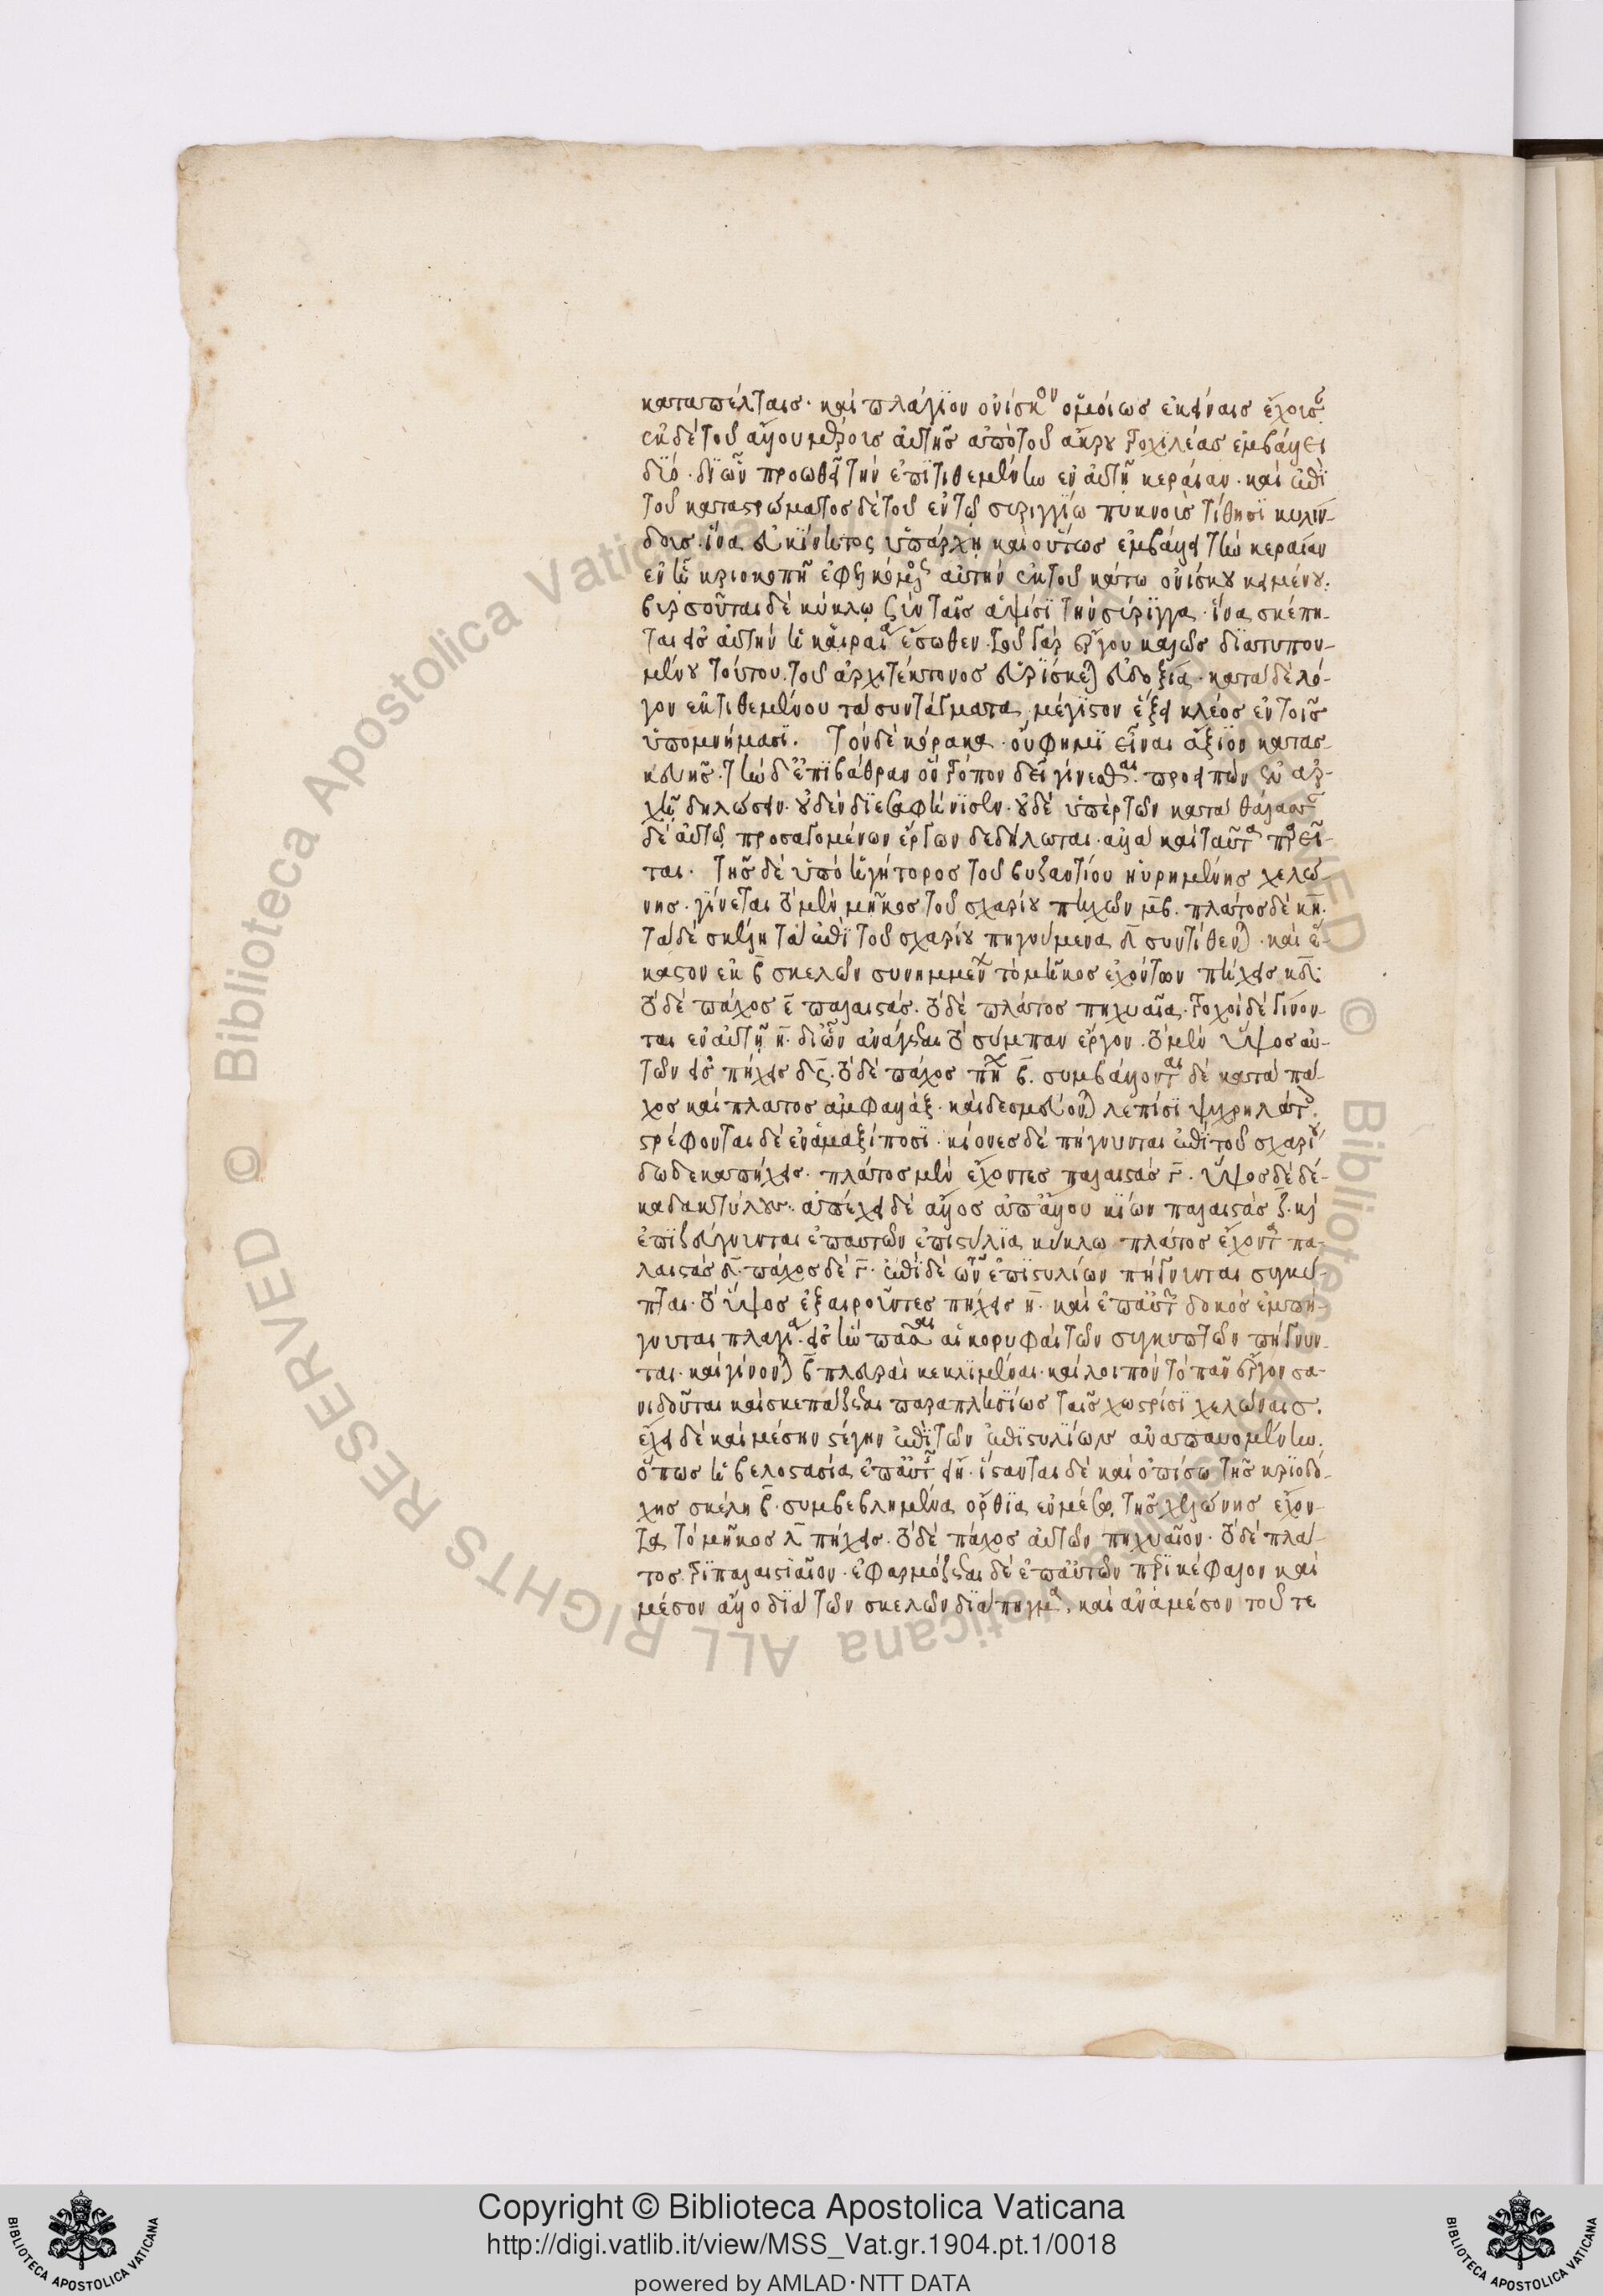 καταπέλταις· καὶ πλάγιον ὀνίσκον ὁμοίως ἐκείναις ἔχουσ
ἐκ δὲ τοῦ ἄλλου μέρους αὐτῆς ἀπὸ τοῦ ἄκρου τροχιλέας ἐμβάλλει
δύο· δι' ὧν προωθεῖ τὴν ἐπιτιθεμένην ἐν αὐτῇ κεραίαν· καὶ ἐπὶ
τοῦ καταστρώματος δὲ τοῦ ἐν τῷ συριγγίῳ πυκνοὺς τίθησι κυλίν-
δρους. ἵνα εὐκίνητος ὑπάρχῃ καὶ οὕτως ἐμβάλλει τὴν κεραίαν
ἐν τῇ κριοκοπῇ ἐφελκόμενος αὐτὴν ἐκ τοῦ κάτω ὀνίσκου κειμένου·
βυρσοῦται δὲ κύκλῳ σὺν ταῖς ἁψῖσι τὴν σύριγγα· ἵνα σκέπη-
ται εἰς αὐτὴν ἡ κεραία ἔσωθεν. τοῦ γὰρ ἔργου καλῶς διατυπου-
μένου τούτου. τοῦ ἀρχιτέκτονος εὑρίσκεται εὐδοξία· κατὰ δὲ λό-
γον ἐκτιθεμένου τὰ συντάγματα μέγιστον ἕξει κλέος ἐν τοῖς
ὑπομνήμασι. Τὸν δὲ κόρακα οὔ φημι εἶναι ἄξιον κατασ-
κευῆς. τὴν δ' ἐπιβάθραν ὃν τρόπον δεῖ γίνεσθαι. προειπὼν ἐν ἀρ-
χῇ δηλώσειν· οὐδὲν διεσαφήνισεν· οὐδὲ ὑπὲρ τῶν κατὰ θάλασσαν
δὲ αὐτῷ προσαγομένων ἔργων δεδήλωται· ἀλλὰ καὶ ταῦτα παρεῖ-
ται. Τῆς δὲ ὑπὸ ἡγήτορος τοῦ βυζαντίου ηὑρημένης χελώ-
νης· γίνεται τὸ μὲν μῆκος τοῦ σχαρίου πήχεων μβ. πλάτος δὲ κη.
Τὰ δὲ σκέλη τὰ ἐπὶ τοῦ σχαρίου πηγνύμενα δ συντίθενται· καὶ ἕ-
καστον ἐκ β σκελῶν συνημμένων τὸ μῆκος ἐχόντων πήχεις κδ.
τὸ δὲ πάχος ε παλαιστάς. τὸ δὲ πλάτος πηχυαῖα. τροχοὶ δὲ γίνον-
ται ἐν αὐτῇ η. δι' ὧν ἀνάγεσθαι τὸ σύμπαν ἔργον. τὸ μὲν ὕψος αὐ-
τῶν εἰς πήχεις δς. τὸ δὲ πάχος πηχῶν β. συμβάλλονται δὲ κατὰ πά-
χος καὶ πλάτος ἀμφαλλάξ· καὶ δεσμεύονται λεπίσι ψυχρηλάτοις.
στρέφονται δὲ ἐν ἁμαξίποσι· κίονες δὲ πήγνυνται ἐπὶ τοῦ σχαρίου
δωδεκαπήχεις· πλάτος μὲν ἔχοντες παλαιστὰς γ. ὕψος δὲ δέ-
κα δακτύλους· ἀπέχει δὲ ἄλλος ἀπ' ἄλλου κίων παλαιστὰς ζ. καὶ
ἐπιζεύγνυνται ἐπ' αὐτῶν ἐπιστύλια κύκλῳ πλάτος ἔχοντα πα-
λαιστὰς δ. πάχος δὲ γ. ἐπὶ δὲ τῶν ἐπιστυλίων πήγνυνται συγκύ-
πται. τὸ ὕψος ἐξαιροῦντες πήχεις η. καὶ ἐπ' αὐτῶν δοκὸς ἐμπή-
γνυται πλαγία. εἰς ἣν πᾶσαι αἱ κορυφαὶ τῶν συγκυπτῶν πήγνυν-
ται· καὶ γίνονται β πλευραὶ κεκλιμέναι· καὶ λοιπὸν τὸ πᾶν ἔργον σα-
νιδοῦται καὶ σκεπάζεσθαι παραπλησίως ταῖς χωστρίσι χελώναις.
ἔχει δὲ καὶ μέσην στέγην ἐπὶ τῶν ἐπιστυλίων ἀναπαυομένην.
ὅπως ἡ βελοστασία ἐπ' αὐτῆς εἴη. ἵστανται δὲ καὶ ὀπίσω τῆς κριοδό-
χης σκέλη β συμβεβλημένα ὄρθια ἐν μέσῳ τῆς χελώνης ἔχον-
τα τὸ μῆκος λ πήχεις. τὸ δὲ πάχος αὐτῶν πηχυαῖον. τὸ δὲ πλά-
τος τριπαλαιστιαῖον· ἐφαρμόζεσθαι δὲ ἐπ' αὐτῶν περικέφαλον καὶ
μέσον ἄλλο διὰ τῶν σκελῶν διάπηγμα. καὶ ἀνάμεσον τοῦ τε
Copyright © Biblioteca Apostolica Vaticana
http://digi.vatlib.it/view/MSS_Vat.gr.1904.pt.1/0018
powered by AMLAD·NTT DATA
BIBLIOTECA APOSTOLICA VATICANA
BIBLIOTECA APOSTOLICA VATICANA
© Biblioteca Apostolica Vaticana ALL RIGHTS RESERVED
© Biblioteca Apostolica Vaticana ALL RIGHTS RESERVED